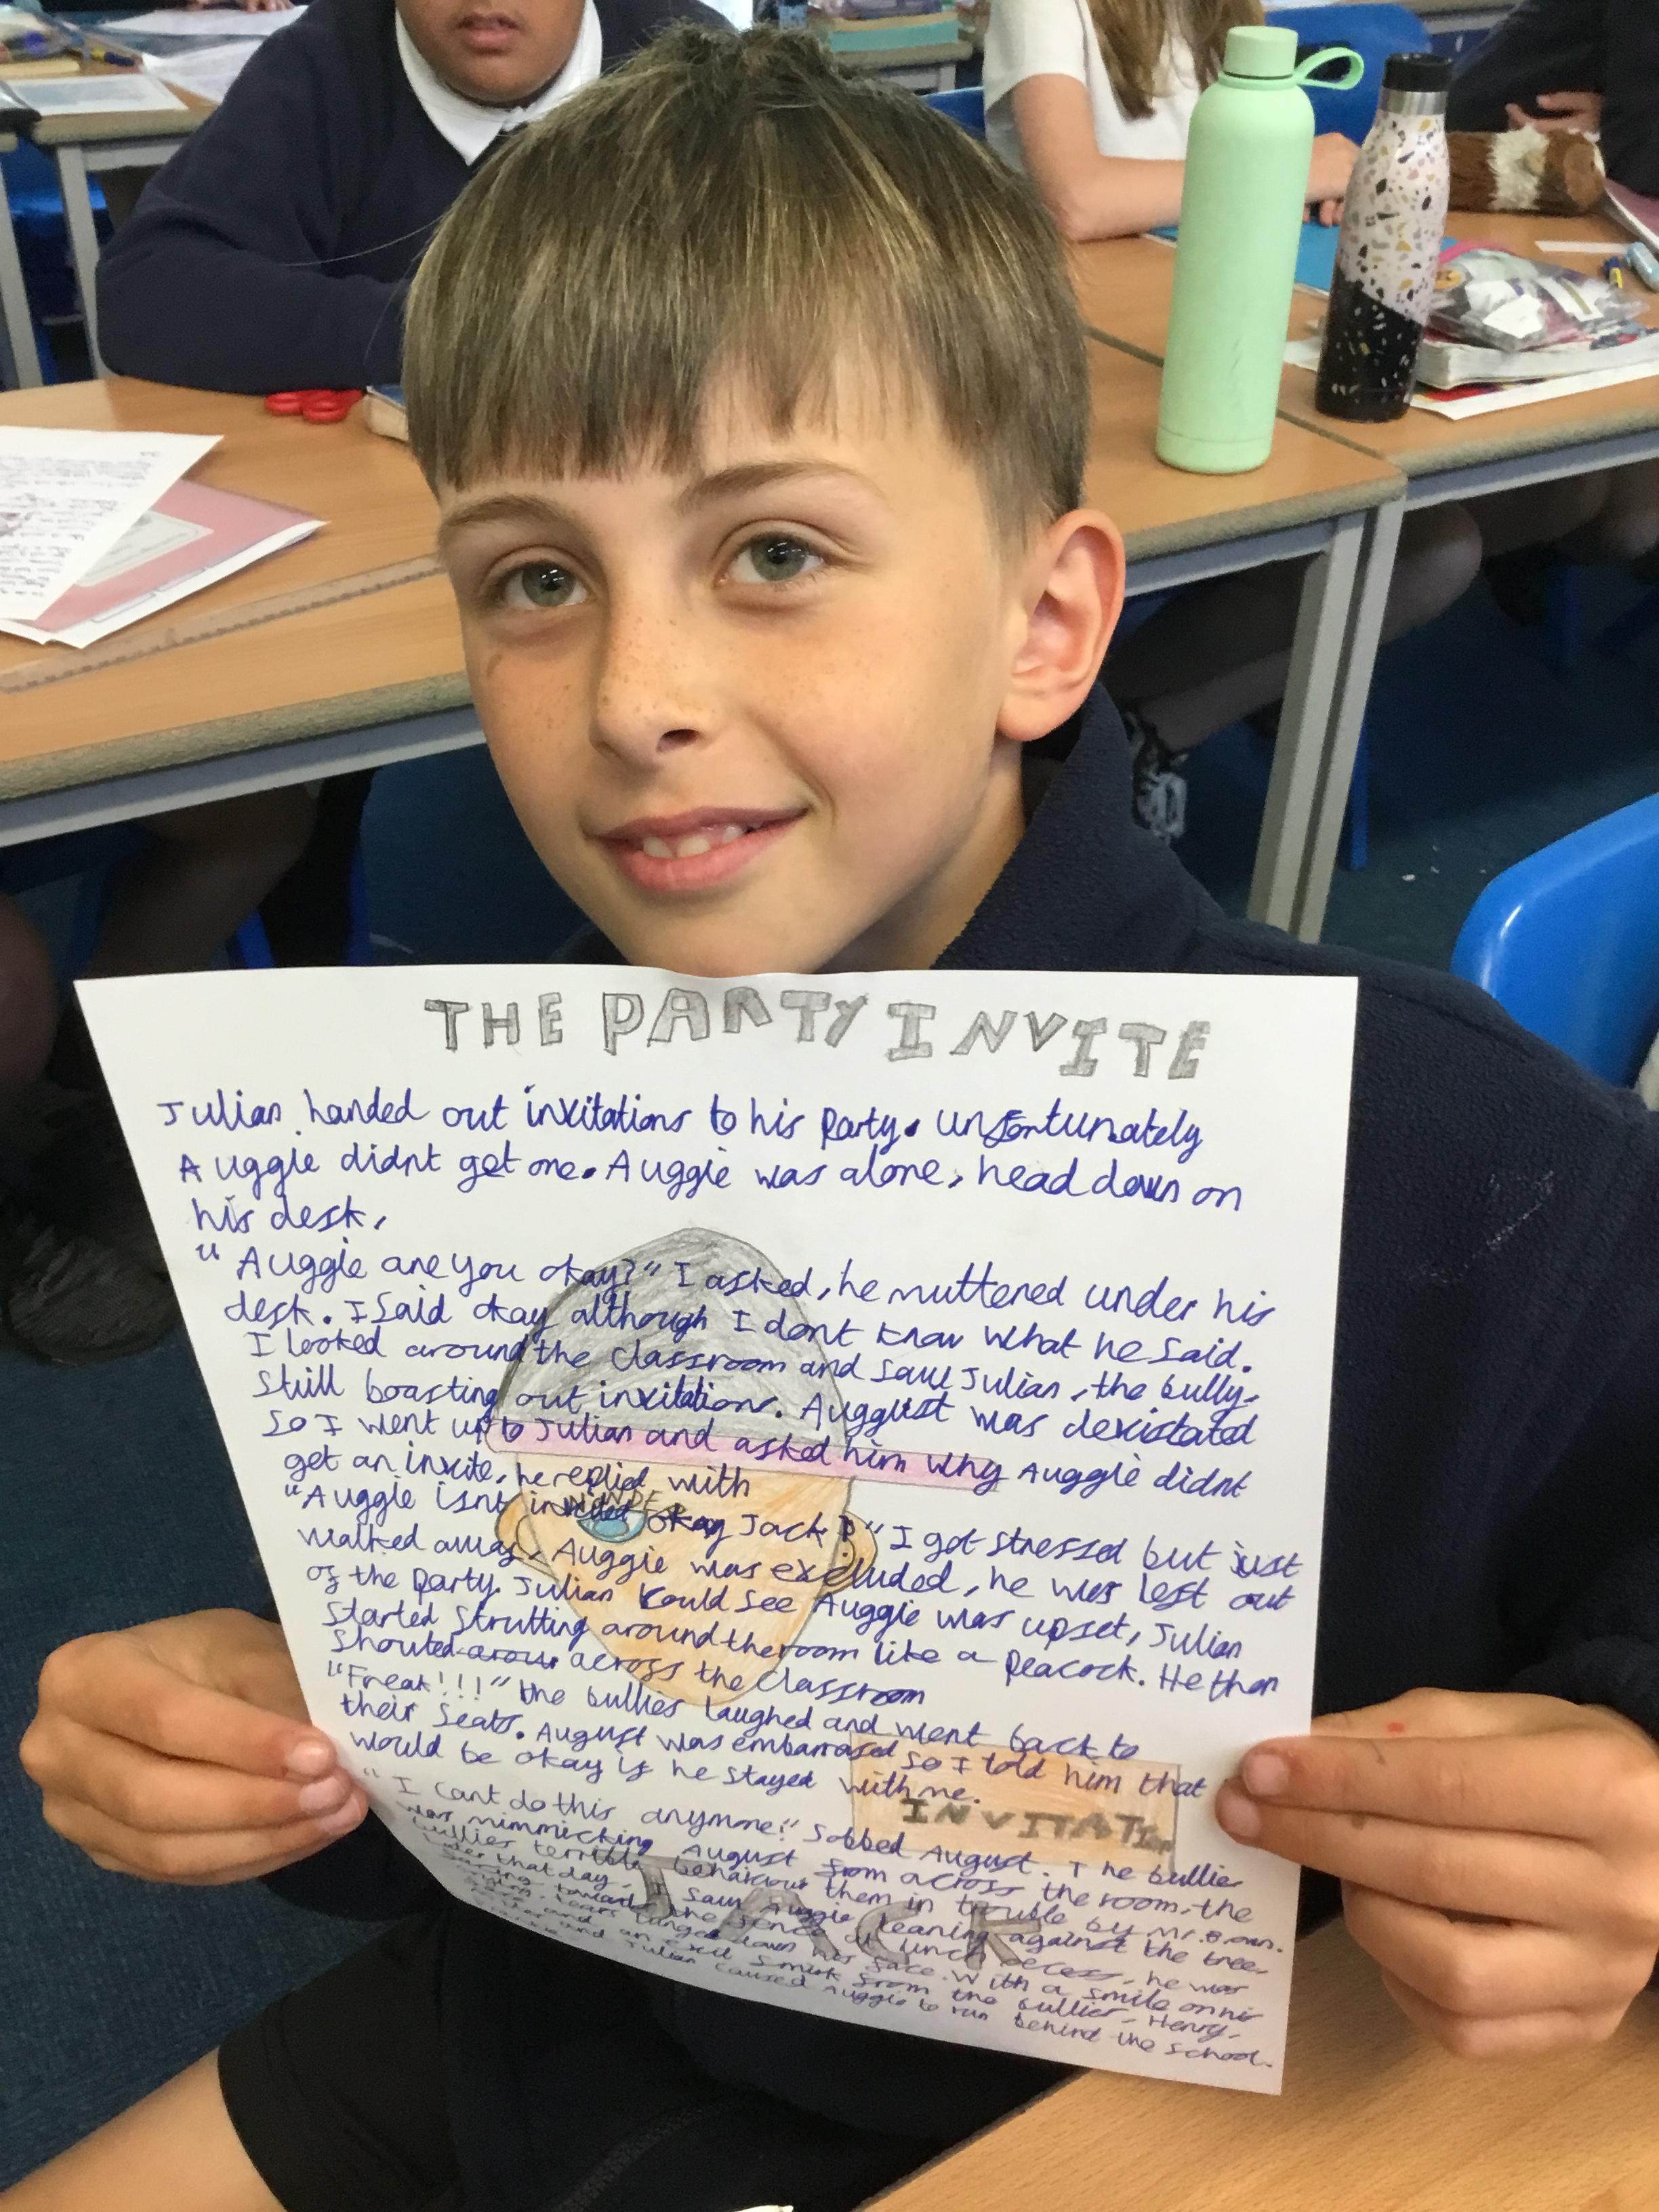 THE PARTY INVITE
Julian handed out invitations to his party. unfortunately
Auggie didnt get one. Auggie was alone, head down on
his desk,
"Auggie are you okay?" I asked, he muttered under his
desk. I said okay although I dont know what he said.
I looked around the classroom and saw Julian, the bully,
still boasting out invitations. Auggust was devistated
so I went up to Julian and asked him why Auggie didnt
get an invite, he replied with
"Auggie isnt invited okay Jack!?" I got stressed but just
walked away. Auggie was excluded, he was left out
of the party. Julian could see Auggie was upset, Julian
started strutting around the room like a peacock. He then
shouted across the classroom
"Freak!!!" the bullies laughed and went back to
their seats. August was embarrased so I told him that
would be okay if he stayed with me.
"I cant do this anymore." Sobbed August. The bullies
was mimmicking August from across the room, the
bullies terrible behaviour them in trouble by Mr. Brown.
later that day, I saw Auggie leaning against the tree,
towards the fence at lunch recess, he was
tears down his face. With a smile on his
and an evil smirk from the bullies, Henry,
and Julian caused Auggie to run behind the school.
WONDER
INVITATION
JACK